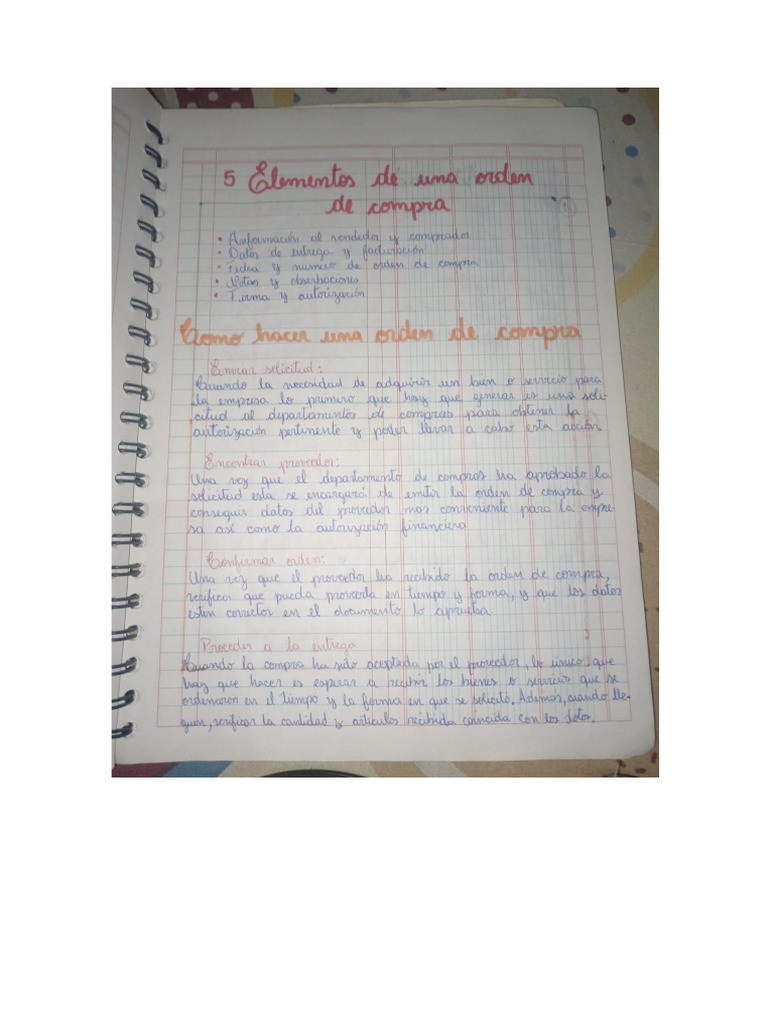 5 Elementos de una orden
de compra
• Información al vendedor y comprador
• Datos de entrega y facturación
• Fecha y numero de orden de compra
• Notas y obserbaciones
• Firma y autorización
Como hacer una orden de compra
Enviar solicitud:
Cuando la necesidad de adquirir un bien o servicio para
la empresa lo primero que hay que generar es una soli-
citud al departamentos de compras para obtener la
autorización pertinente y poder llevar a cabo esta acción.
Encontrar proveedor:
Una vez que el departamento de compras ha aprobado la
solicitud esta se encargará de emitir la orden de compra y
conseguir datos del provedor mas conveniente para la empre-
sa así como la autorización financiera
Confirmar orden:
Una vez que el proveedor ha recibido la orden de compra,
verificar que pueda proveerla en tiempo y forma, y que los datos
esten correctos en el documento lo aprueba.
Proceder a la entrega
Cuando la compra ha sido aceptada por el proveedor, lo único que
hay que hacer es esperar a recibir los bienes o servicio que se
ordenaron en el tiempo y la forma en que se solicitó. Ademas, cuando lle-
guen, verificar la cantidad y articulos recibida coincida con los datos.